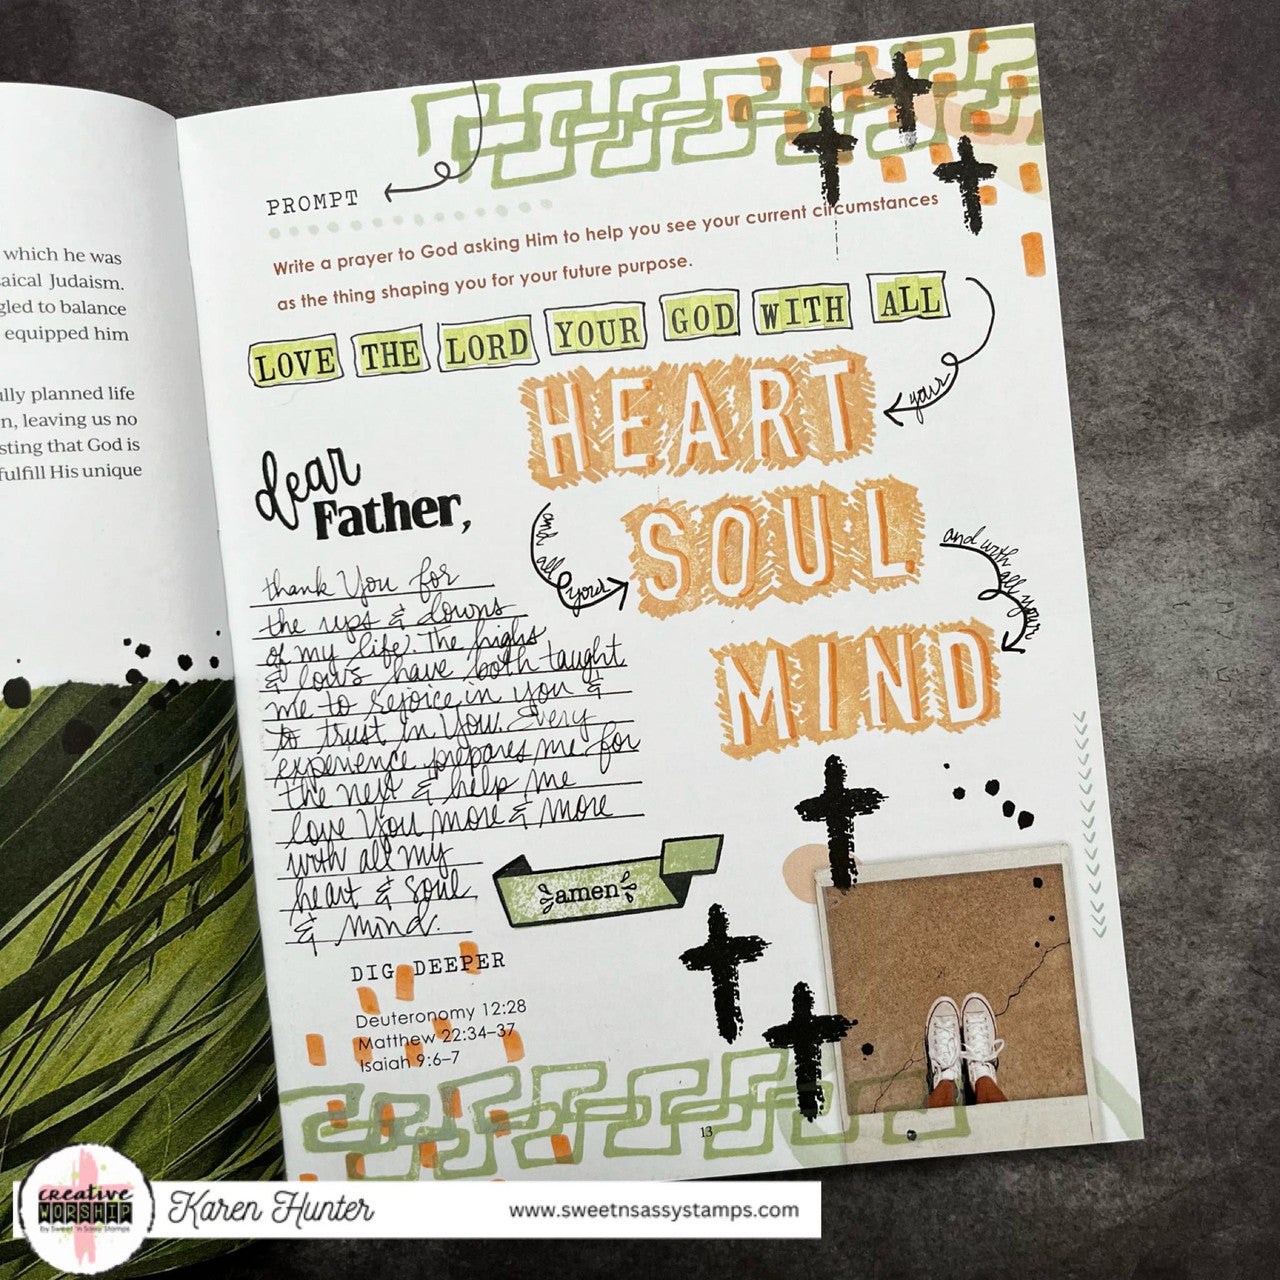 which he was
aical Judaism.
gled to balance
equipped him
ully planned life
n, leaving us no
sting that God is
fulfill His unique
PROMPT
Write a prayer to God asking Him to help you see your current circumstances
as the thing shaping you for your future purpose.
LOVE THE LORD YOUR GOD WITH ALL
your
HEART
and all your
SOUL
and with all your
MIND
dear
Father,
thank You for
the ups & downs
of my life. The highs
& lows have both taught
me to rejoice in you &
to trust in You. Every
experience prepares me for
the next & help me
love You more & more
with all my
heart & soul
& mind.
amen
DIG DEEPER
Deuteronomy 12:28
Matthew 22:34–37
Isaiah 9:6–7
13
creative
WORSHIP
by Sweet 'n Sassy Stamps
Karen Hunter
www.sweetnsassystamps.com